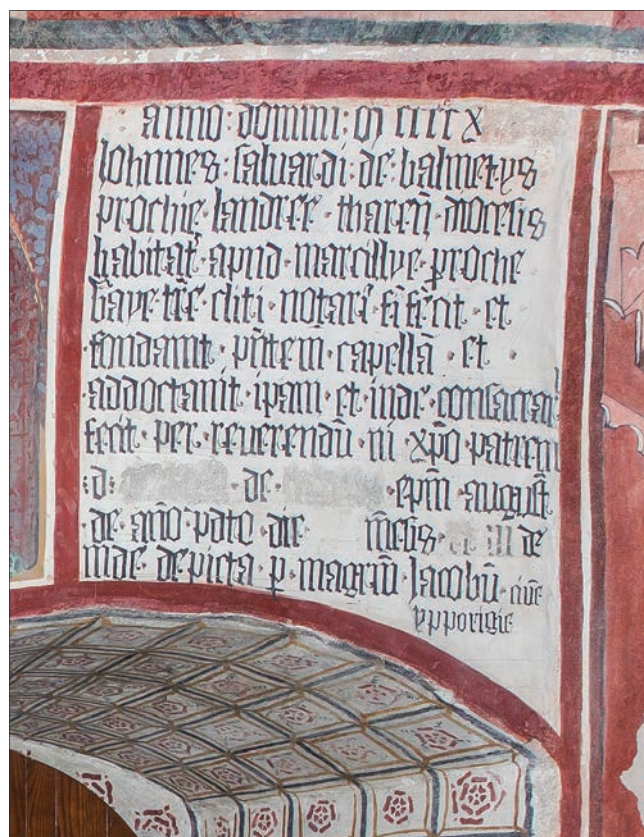 anno · domini · m cccc x
Iohannes · saluardi · de · balmetys
prochie · landree · tharen̄ · diocesis
habitat̄ · apud · marcillye · p̄roche
Gaye · tr̄e · cliti · notari · fi fecit · et
· fondauit · pn̄tem̄ · capellā · et ·
· addoctauit · ip̄am · et · inde · consacrar
fecit · per · reuerendū · in · xp̄o · patrem
: d : de · ep̄m · august̄
· de · ān̄o · p̄dto · die m̄esis · de
inde · depicta · p̄ · magrm̄ · Jacobū · ciuē
ypporigie